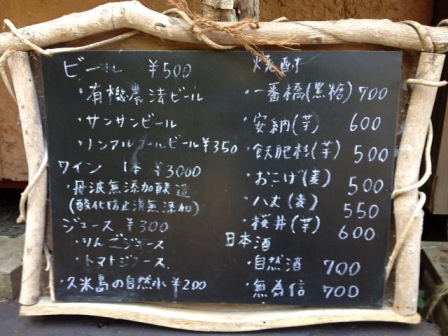 ビール ¥500
・有機農法ビール
・サンサンビール
・ノンアルコールビール ¥350
ワイン 1本 ¥3000
・丹波無添加醸造
(酸化防止剤無添加)
ジュース ¥300
・りんごジュース
・トマトジュース
・久米島の自然水 ¥200
焼酎
・一番橋(黒糖) 700
・安納(芋) 600
・飫肥杉(芋) 500
・おこげ(麦) 500
・八丈(麦) 550
・桜井(芋) 600
日本酒
・自然酒 700
・無為信 700